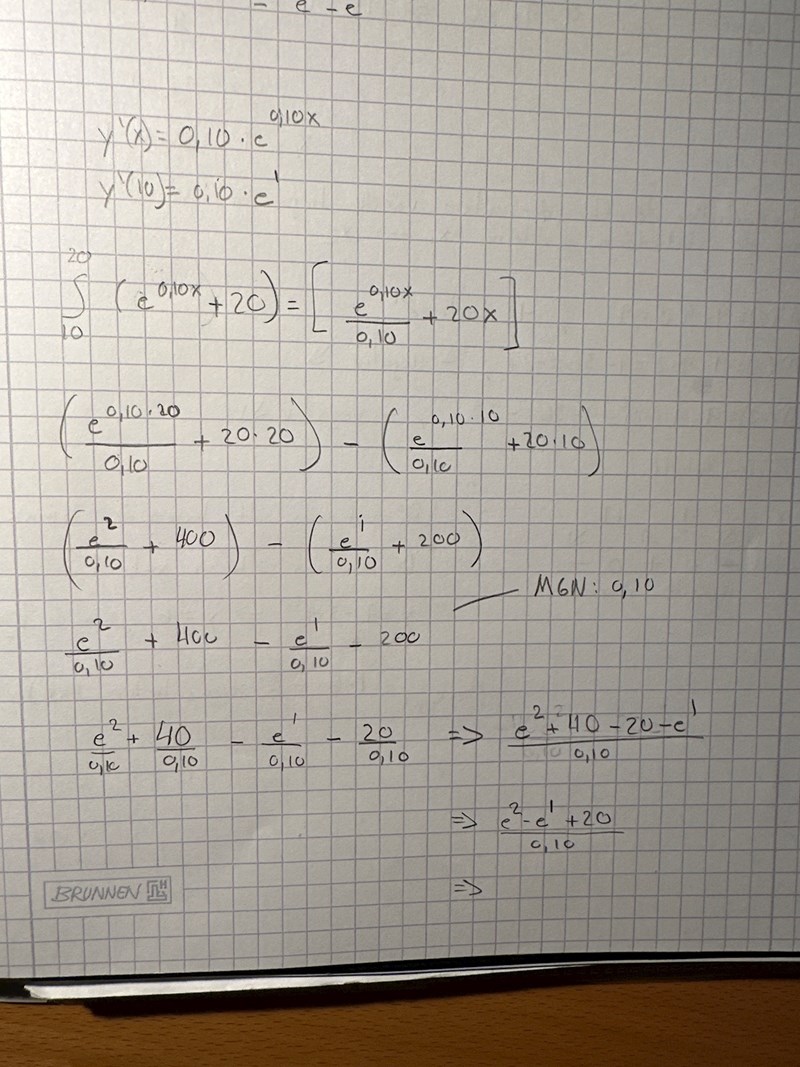 - e - e
y'(x) = 0,10 · e^0,10x
y'(10) = 0,10 · e^1
20
∫ (e^0,10x + 20) = [e^0,10x/0,10 + 20x]
10
(e^0,10·20/0,10 + 20·20) - (e^0,10·10/0,10 + 20·10)
(e^2/0,10 + 400) - (e^1/0,10 + 200)
MGN: 0,10
e^2/0,10 + 400 - e^1/0,10 - 200
e^2/0,10 + 40/0,10 - e^1/0,10 - 20/0,10 => e^2 + 40 - 20 - e^1/0,10
=> e^2 - e^1 + 20/0,10
BRUNNEN =>